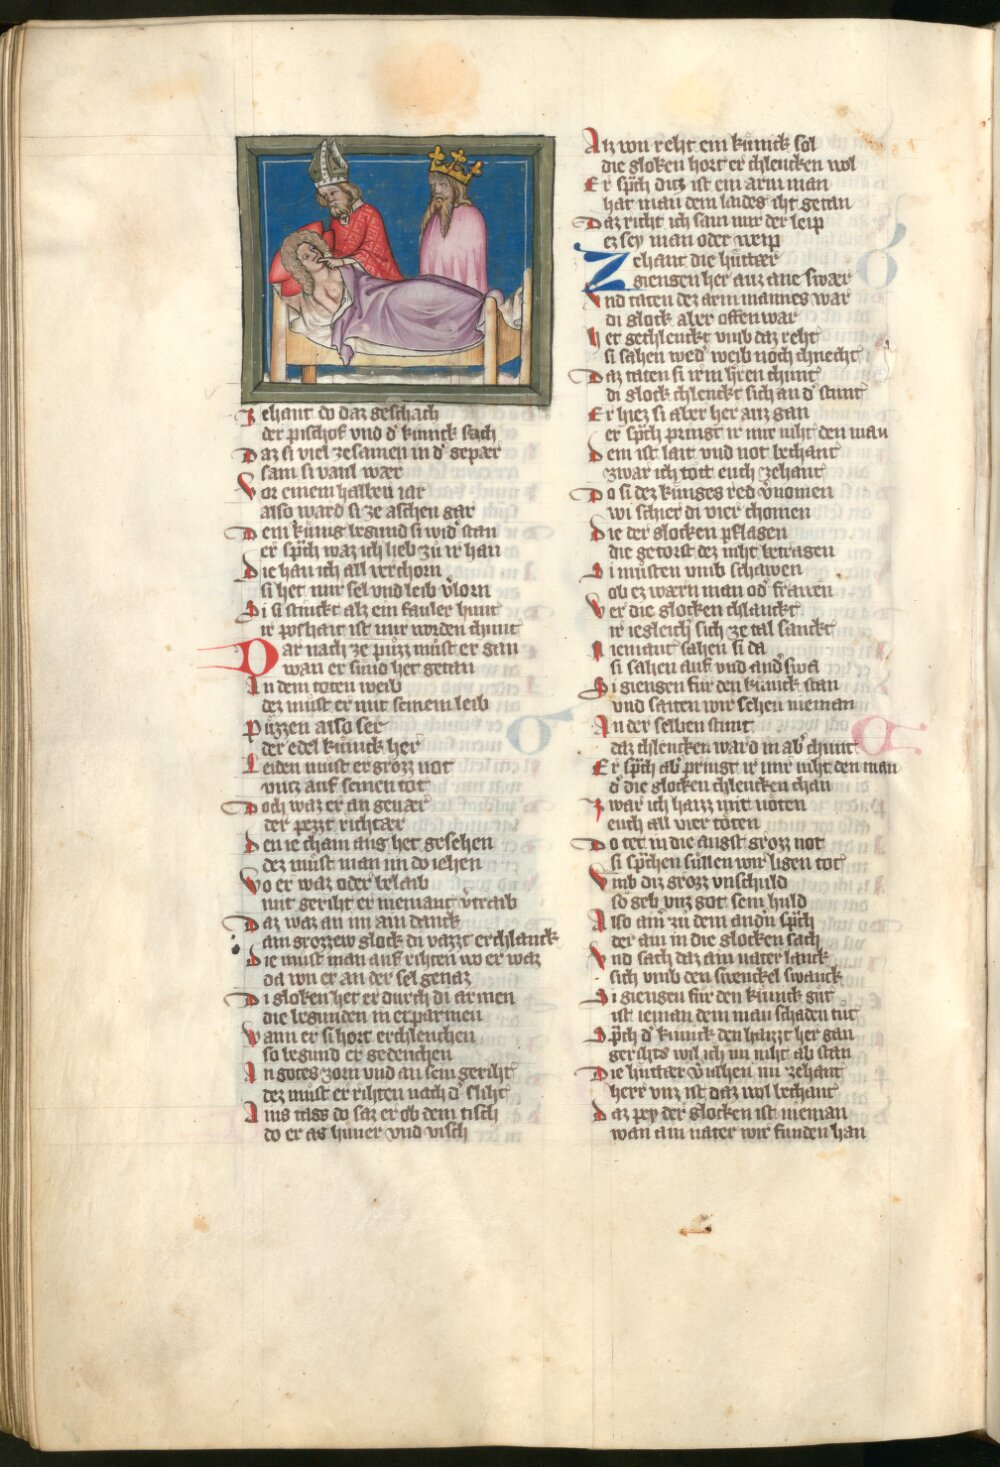 Zehant do daz geschach
der pischof vnd d' künick sach
Daz si viel zesamen in d' gepær
sam si vaul wær
Vor einem halben iar
also ward si ze aschen gar
Dem künig begund si wid' stan
er sp̃ch waz ich lieb zü ir han
Die han ich all verchorn
si het mir sel vnd leib v̓lorn
Si si stinckt alz ein fauler hunt
ir poshait ist mir worden chunt
Dar nach ze püzz müst er gan
wan er sünd het getan
An dem toten weib
dez müst er mit seinem leib
Püzzen also ser
der edel künick her
Leiden müst er grozz not
vncz auf seinen tot
Doch waz er an gevær
der pezzt richtær
Den ie chain aug het gesehen
dez müst man im do iehen
Wo er waz oder belaib
mit geriht er niemant v̓traib
Daz waz an im ain danck
ain grozzew glock di vazzt erchlanck
Die must man auf rihten wo er waz
da von er an der sel genaz
Di gloken het er durch di armen
die begunden in erparmen
Wann er si hort erchlenchen
so begund er gedenchen
An gotes zorn vnd an sein geriht
dez müst er rihten nach d' sliht
Ains tags do saz er ob dem tisch
do er as hüner vnd visch
Alz von reht ein künick sol
die gloken hort er chlencken wol
Er sp̃ch ditz ist ein arm man
hat man dem laides iht getan
Daz richt ich sam mir der leip
ez sey man oder weip
Zehant die hüttær
giengen her auz ane swær
Vnd taten dez arm mannes war
di glock aber offenwar
Wer gechlenckt vmb daz reht
si sahen wed' weib noch chnecht
Daz taten si irm h̓ren chunt
di glock chlenckt sich an d' stunt
Er hiez si aber her auz gan
er sp̃ch pringt ir mir niht den man
Dem ist lait vnd not bechant
zwar ich tött euch zehant
Do si dez küniges red v̓nomen
wi schier di vier chomen
Die der glocken pflagen
die getorst dez niht betragen
Si müsten vmb schawen
ob ez wærn man od' frawen
Wer die glocken chlanckt
ir iegleich sich ze tal sanckt
Niemant sahen si da
si sahen auf vnd and'swa
Si giengen für den künick stan
vnd saiten wir sehen nieman
An der selben stunt
daz chlencken ward in ab' chunt
Er sp̃ch ab' pringt ir mir niht den man
d' die glocken chlencken chan
Zwar ich haizz mit nöten
euch all vier töten
Do tet in die angst grozz not
si sp̃chen süllen wir ligen tot
Vmb diz grozz vnschuld
so geb vnz got sein huld
Also ain' zu dem and'n sp̃ch
der ain in die glocken sach
Vnd sach daz ain nater lanck
sich vmb den swenckel swanck
Si giengen für den künick güt
ist ieman dem man schaden tüt
Sp̃ch d' künick den haizzt her gan
gerihts wil ich im niht ab stan
Die hüttær v̓iahen im zehant
herr vnz ist daz wol bechant
Daz pey der glocken ist nieman
wan ain nater wir funden han